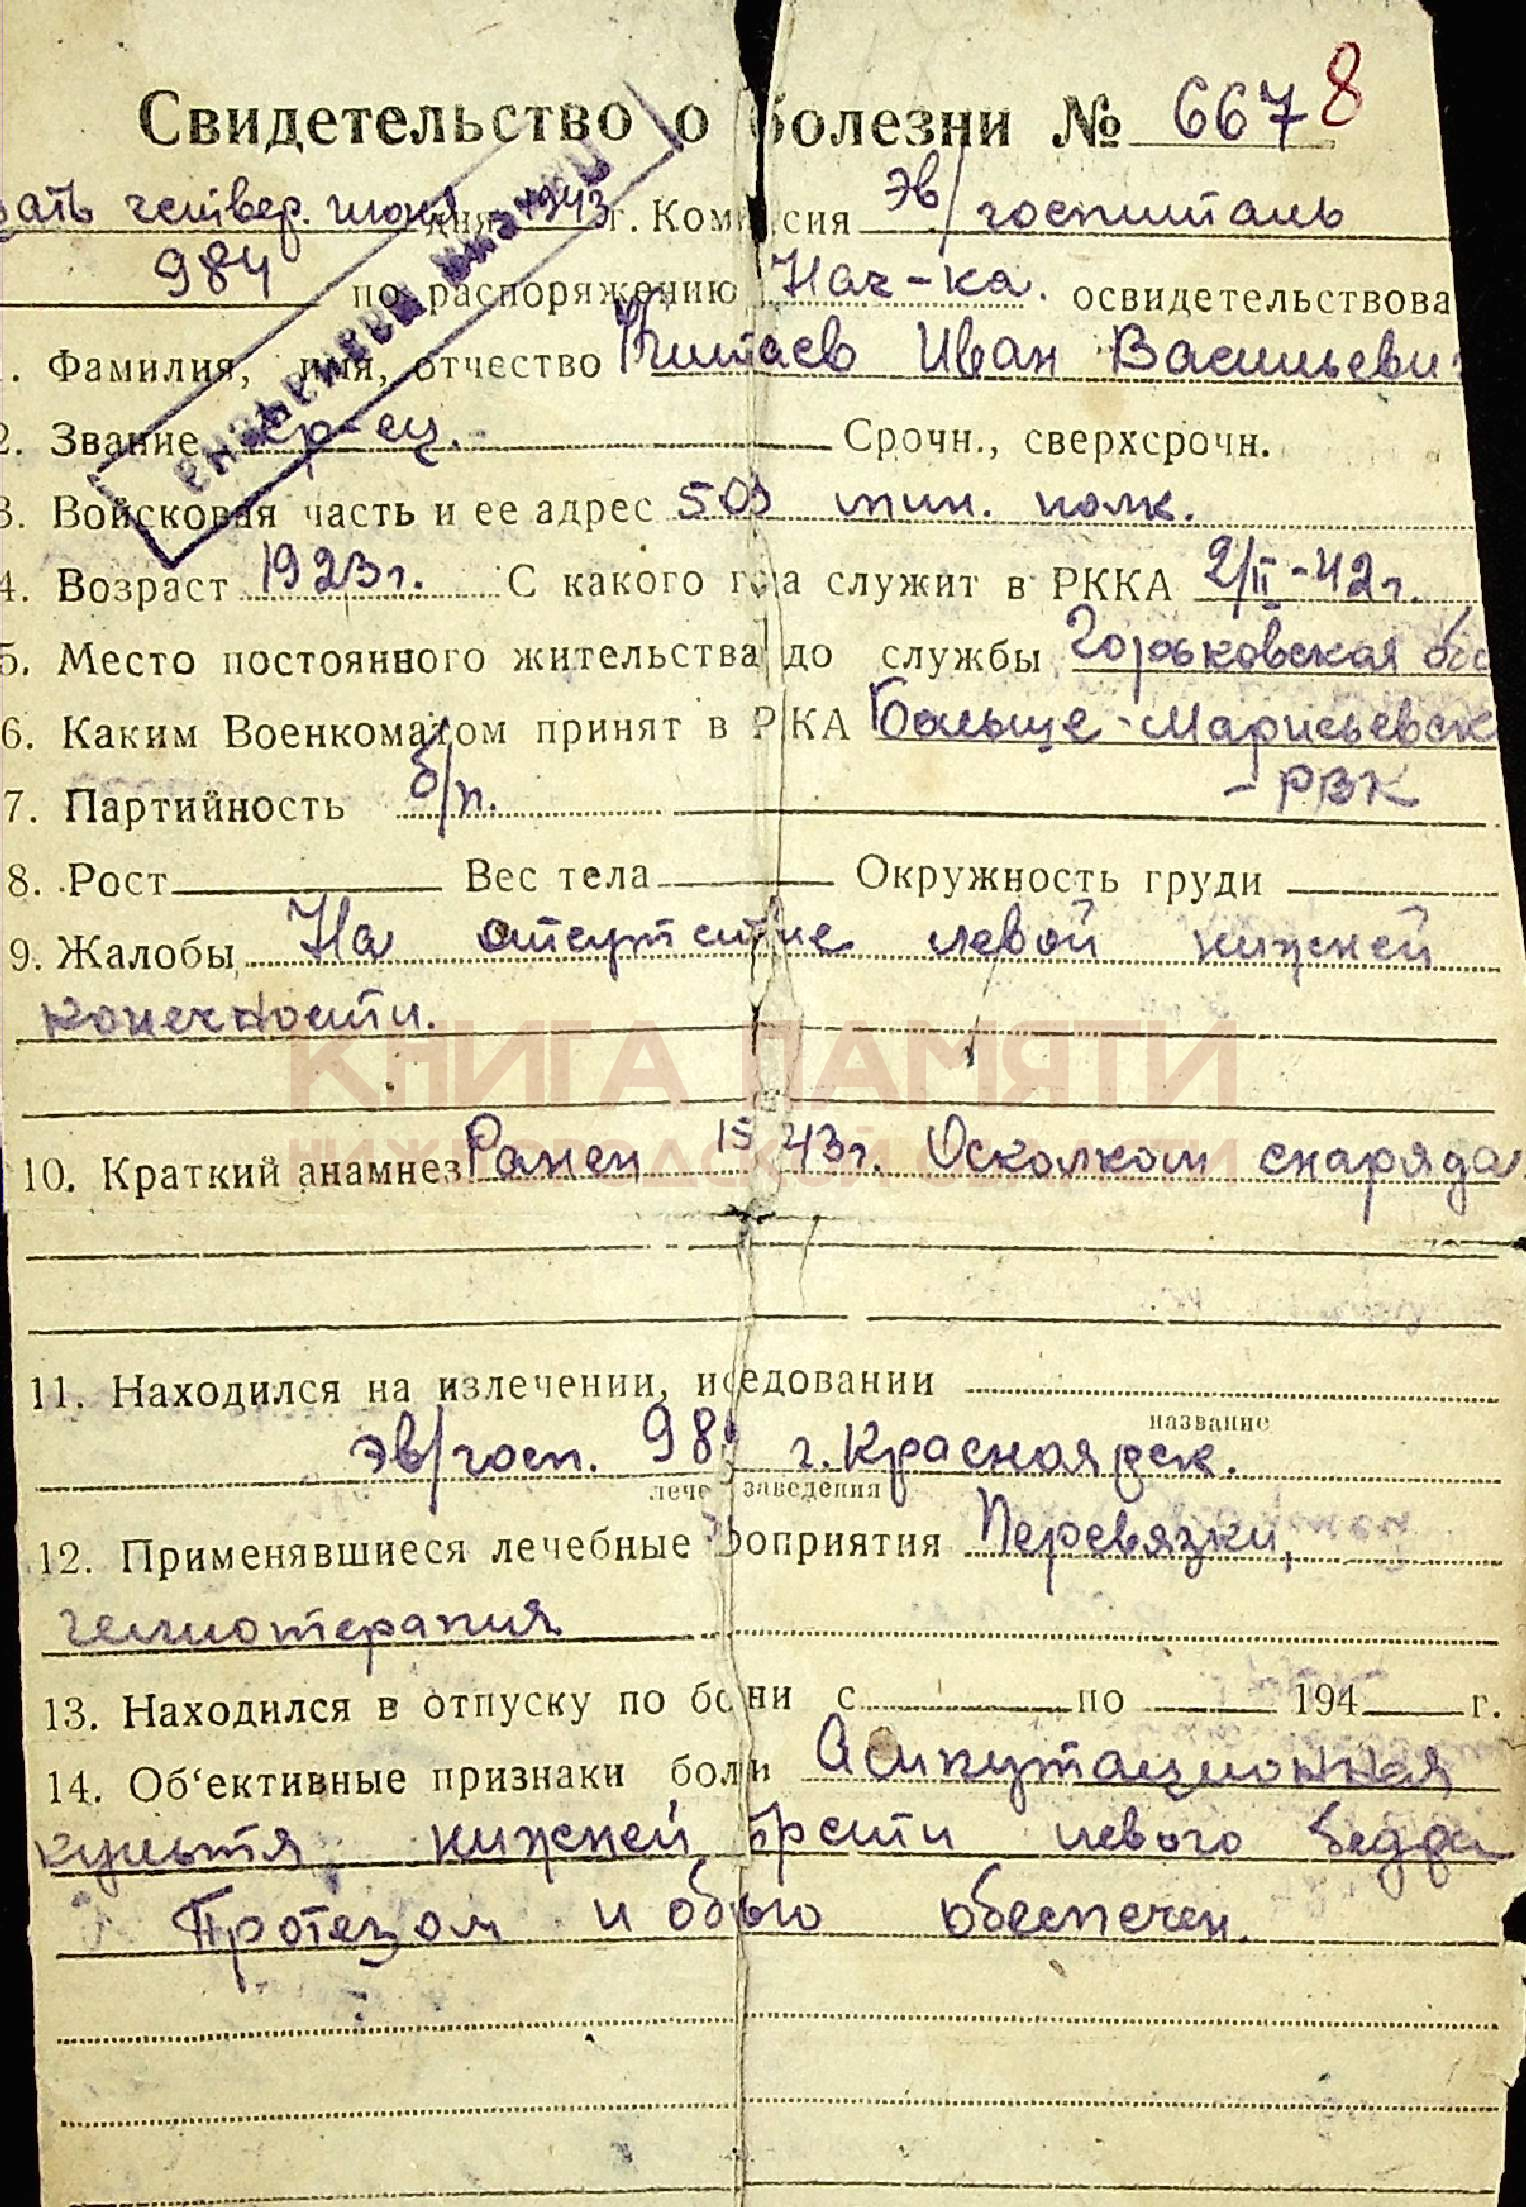 Свидетельство о болезни № 6678
дать четвер. июня дня 1943 г. Комиссия эв/госпиталь
984 по распоряжению Нач-ка. освидетельствова
1. Фамилия, имя, отчество Китаев Иван Васильевич
2. Звание кр-ец. Срочн., сверхсрочн.
3. Войсковая часть и ее адрес 503 мин. полк.
4. Возраст 1923г. С какого года служит в РККА 2/II-42г.
5. Место постоянного жительства до службы Горьковская об
6. Каким Военкоматом принят в РККА Больше-Марисьевск
- РВК
7. Партийность б/п.
8. Рост Вес тела Окружность груди
9. Жалобы На отсутствие левой нижней
конечности.
КНИГА ПАМЯТИ
НИЖЕГОРОДСКОЙ ОБЛАСТИ
10. Краткий анамнез Ранен 15 43г. Осколком снаряда
11. Находился на излечении, иседовании
название
эв/госп. 984 г. Красноярск.
лече заведения
12. Применявшиеся лечебные роприятия Перевязки,
гемотерапия
13. Находился в отпуску по бони с по 194 г.
14. Об'ективные признаки боли Ампутационная
культя нижней трети левого бедра
Протезом и обвью обеспечен.